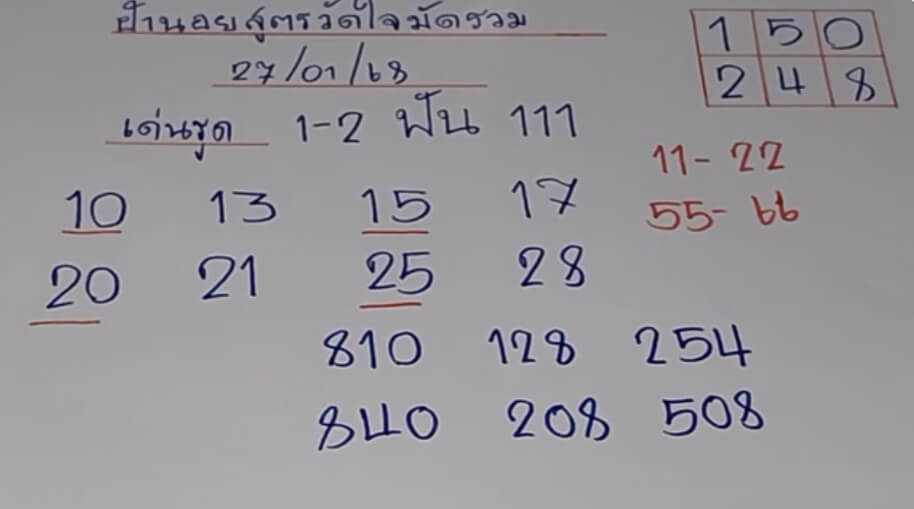 ฝ้านอยสูตรวัดใจมัดรวม
27/01/68
1 5 0
2 4 8
เด่นชุด 1-2 ฟัน 111
11- 22
55- 66
10 13 15 17
20 21 25 28
810 128 254
840 208 508